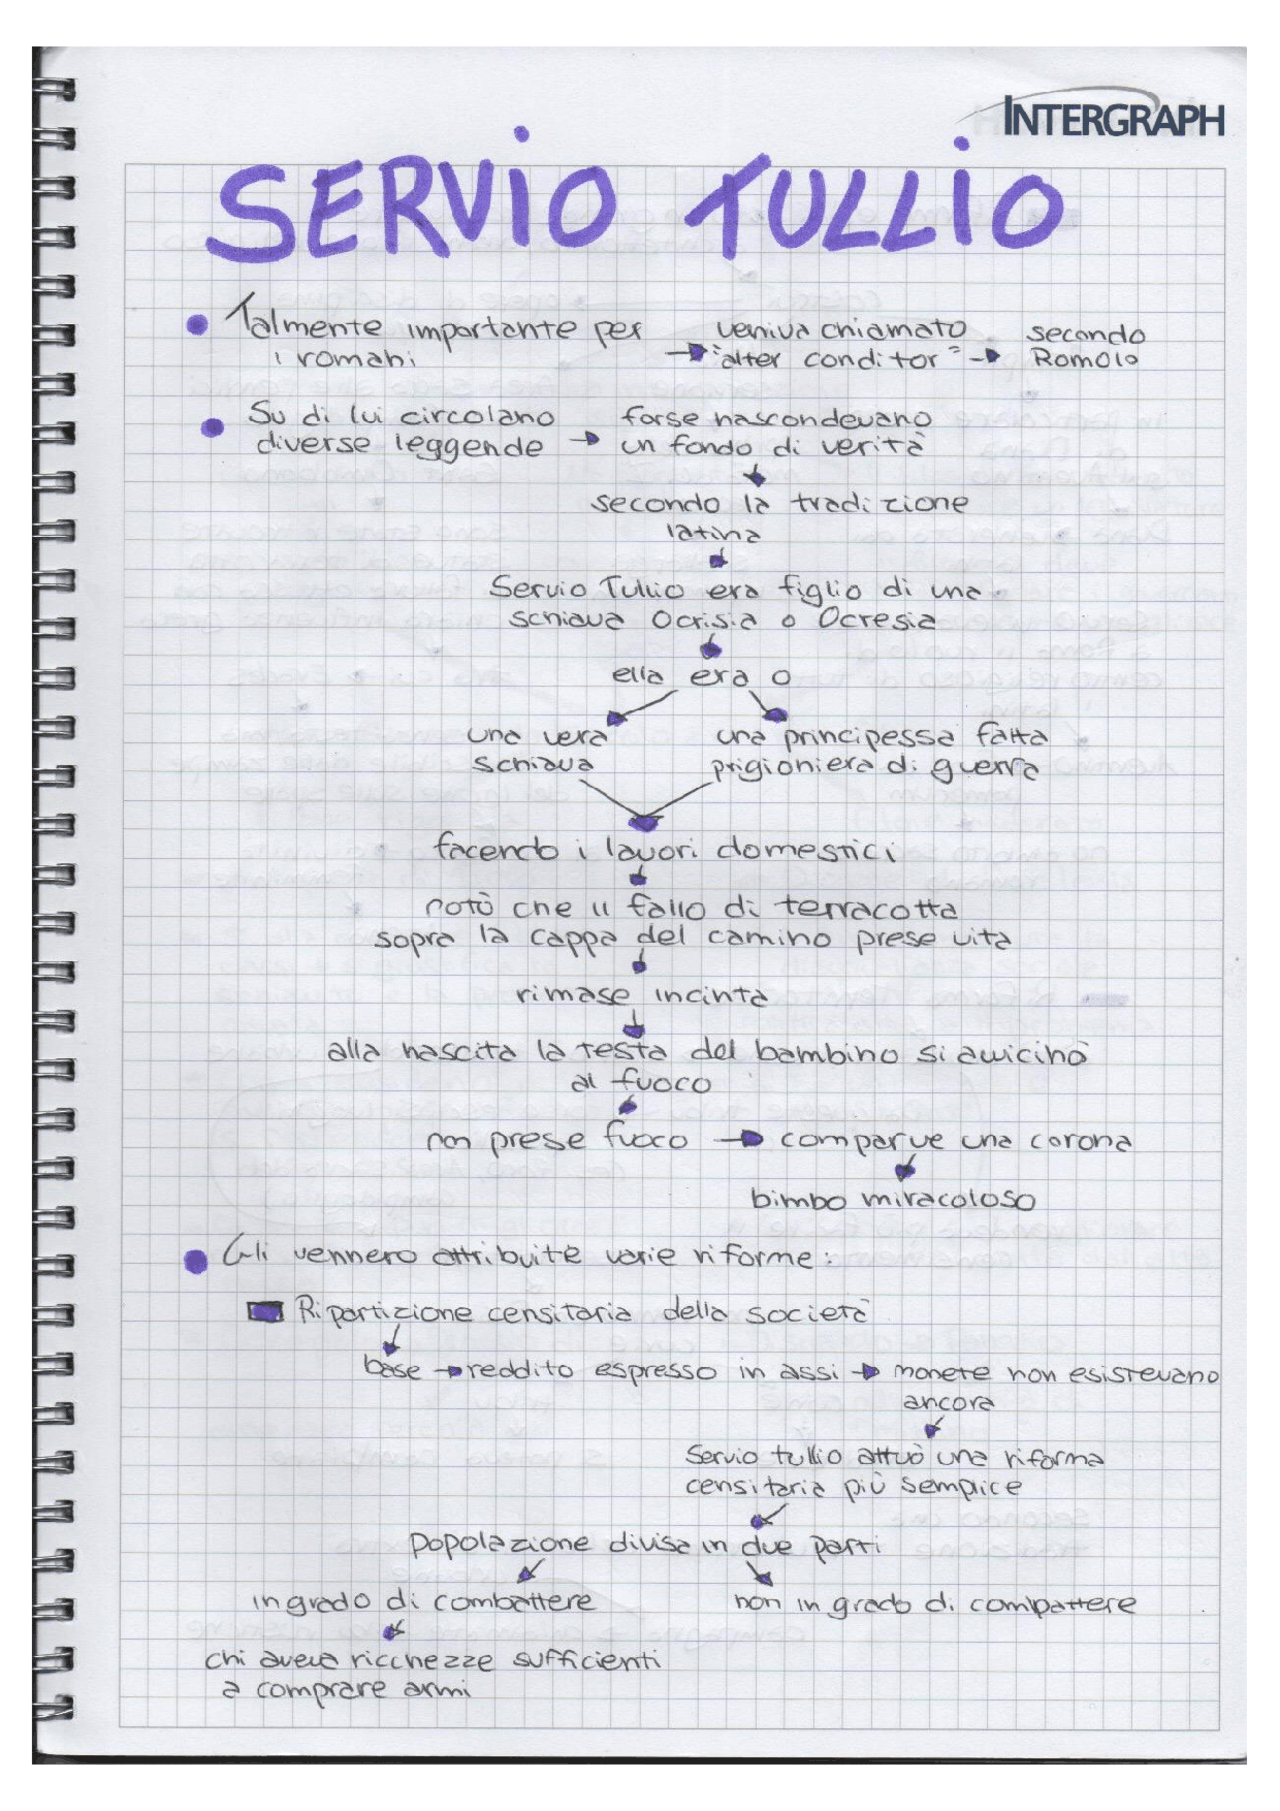 INTERGRAPH
SERVIO TULLIO
Talmente importante per veniva chiamato secondo
i romani → "alter conditor" → Romolo
Su di lui circolano forse nascondevano
diverse leggende → un fondo di verità
secondo la tradizione
latina
Servio Tullio era figlio di una
schiava Ocrisia o Ocresia
ella era o
una vera una principessa fatta
schiava prigioniera di guerra
facendo i lavori domestici
notò che il fallo di terracotta
sopra la cappa del camino prese vita
rimase incinta
alla nascita la testa del bambino si avvicinò
al fuoco
non prese fuoco → comparve una corona
bimbo miracoloso
Gli vennero attribuite varie riforme:
Ripartizione censitaria della società
base → reddito espresso in assi → monete non esistevano
ancora
Servio tullio attuò una riforma
censitaria più semplice
popolazione divisa in due parti
in grado di combattere non in grado di combattere
chi aveva ricchezze sufficienti
a comprare armi